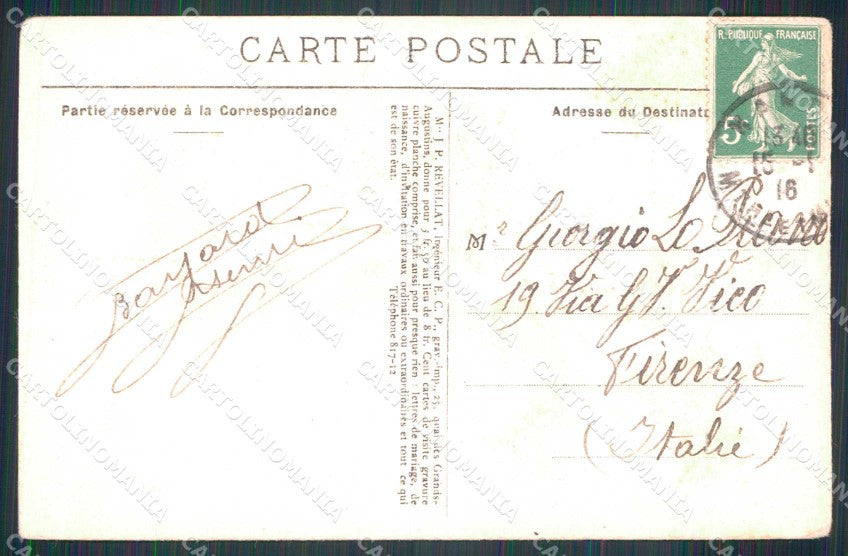 CARTE POSTALE
Partie réservée à la Correspondance
Adresse du Destinat
R. PUBLIQUE FRANÇAISE
5c
POSTES
15
16
Mr J. P. REVELLAT, ingénieur E. C. P., grav.-imp., 25, quai des Grands-
Augustins, donne pour 3 fr. 50 au lieu de 8 fr. Cent cartes de visite gravure
cuivre planche comprise, et fait aussi pour presque rien : lettres de mariage, de
naissance, d'invitation en travaux ordinaires ou extraordinaires et tout ce qui
est de son état.
Téléphone 817-12
Mr Giorgio
19. Via G. V. Vico
Firenze
(Italie)
CARTOLINOMANIA